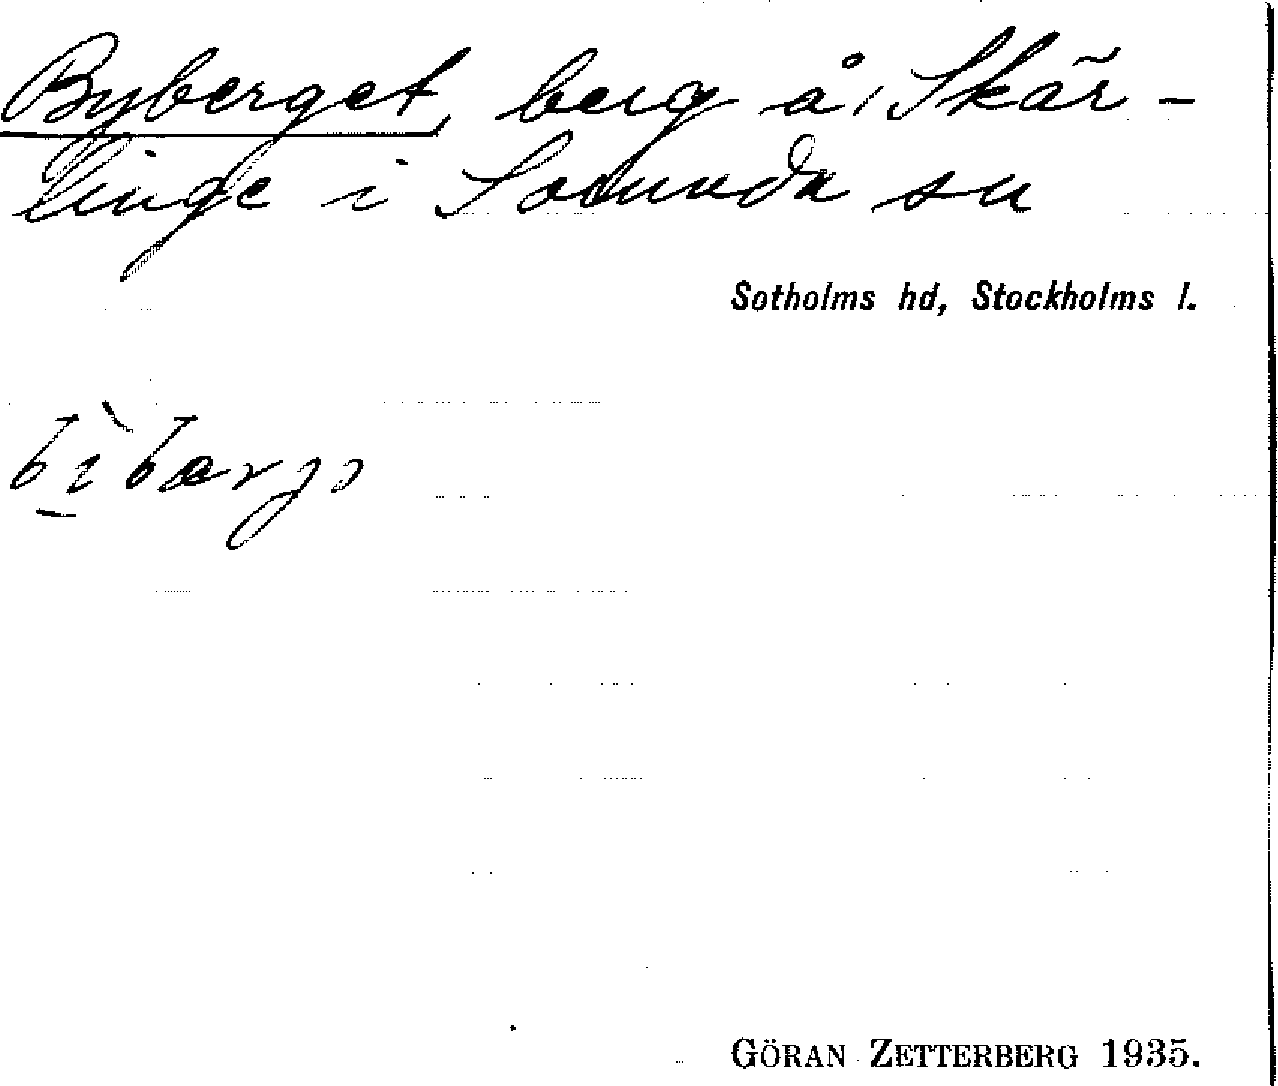 Byberget, berg å Skär-
linge i Sorunda sn
Sotholms hd, Stockholms l.
GÖRAN ZETTERBERG 1935.